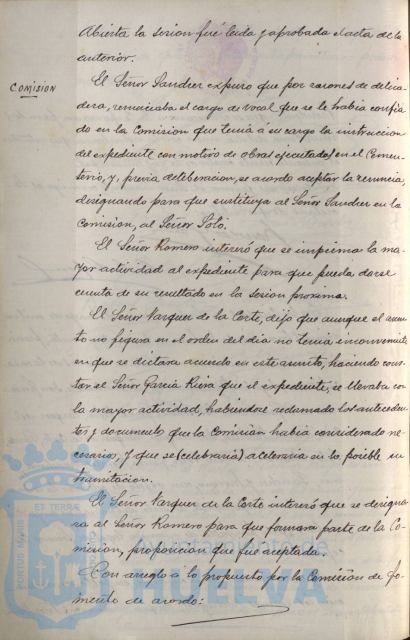 Abierta la sesion fué leida y aprobada el acta de la
anterior.
COMISION
El Señor Sandrer expuso que por razones de delica-
deza, renunciaba el cargo de vocal que se le habia confia
do en la Comision que tenia á su cargo la instruccion
del expediente con motivo de obras ejecutadas en el Cemen-
terio, y, previa deliberacion, se acordo aceptar la renuncia,
designando para que sustituya al Señor Sandrer en la
Comision, al Señor Soló.
El Señor Romero interesó que se imprima la ma-
yor actividad al expediente para que pueda darse
cuenta de su resultado en la sesion proxima.
El Señor Vazquez de la Corte, dijo que aunque el asun
to no figura en el orden del dia no tenia inconveniente
en que se dictara acuerdo en este asunto, haciendo cons-
tar el Señor Garcia Riera que el expediente, se llevaba con
la mayor actividad, habiendose reclamado los anteceden-
tes y documentos que la Comision habia considerado ne-
cesario, y que se (celebraria) aceleraria en lo posible su
tramitacion.
El Señor Vazquez de la Corte interesó que se designa-
ra al Señor Romero para que formara parte de la Co-
mision, proposicion que fué aceptada.
Con arreglo a lo propuesto por la Comision de Fo-
mento se acordo:
PORTUS MARIS
ET TERRÆ
Ayuntamiento de
HUELVA